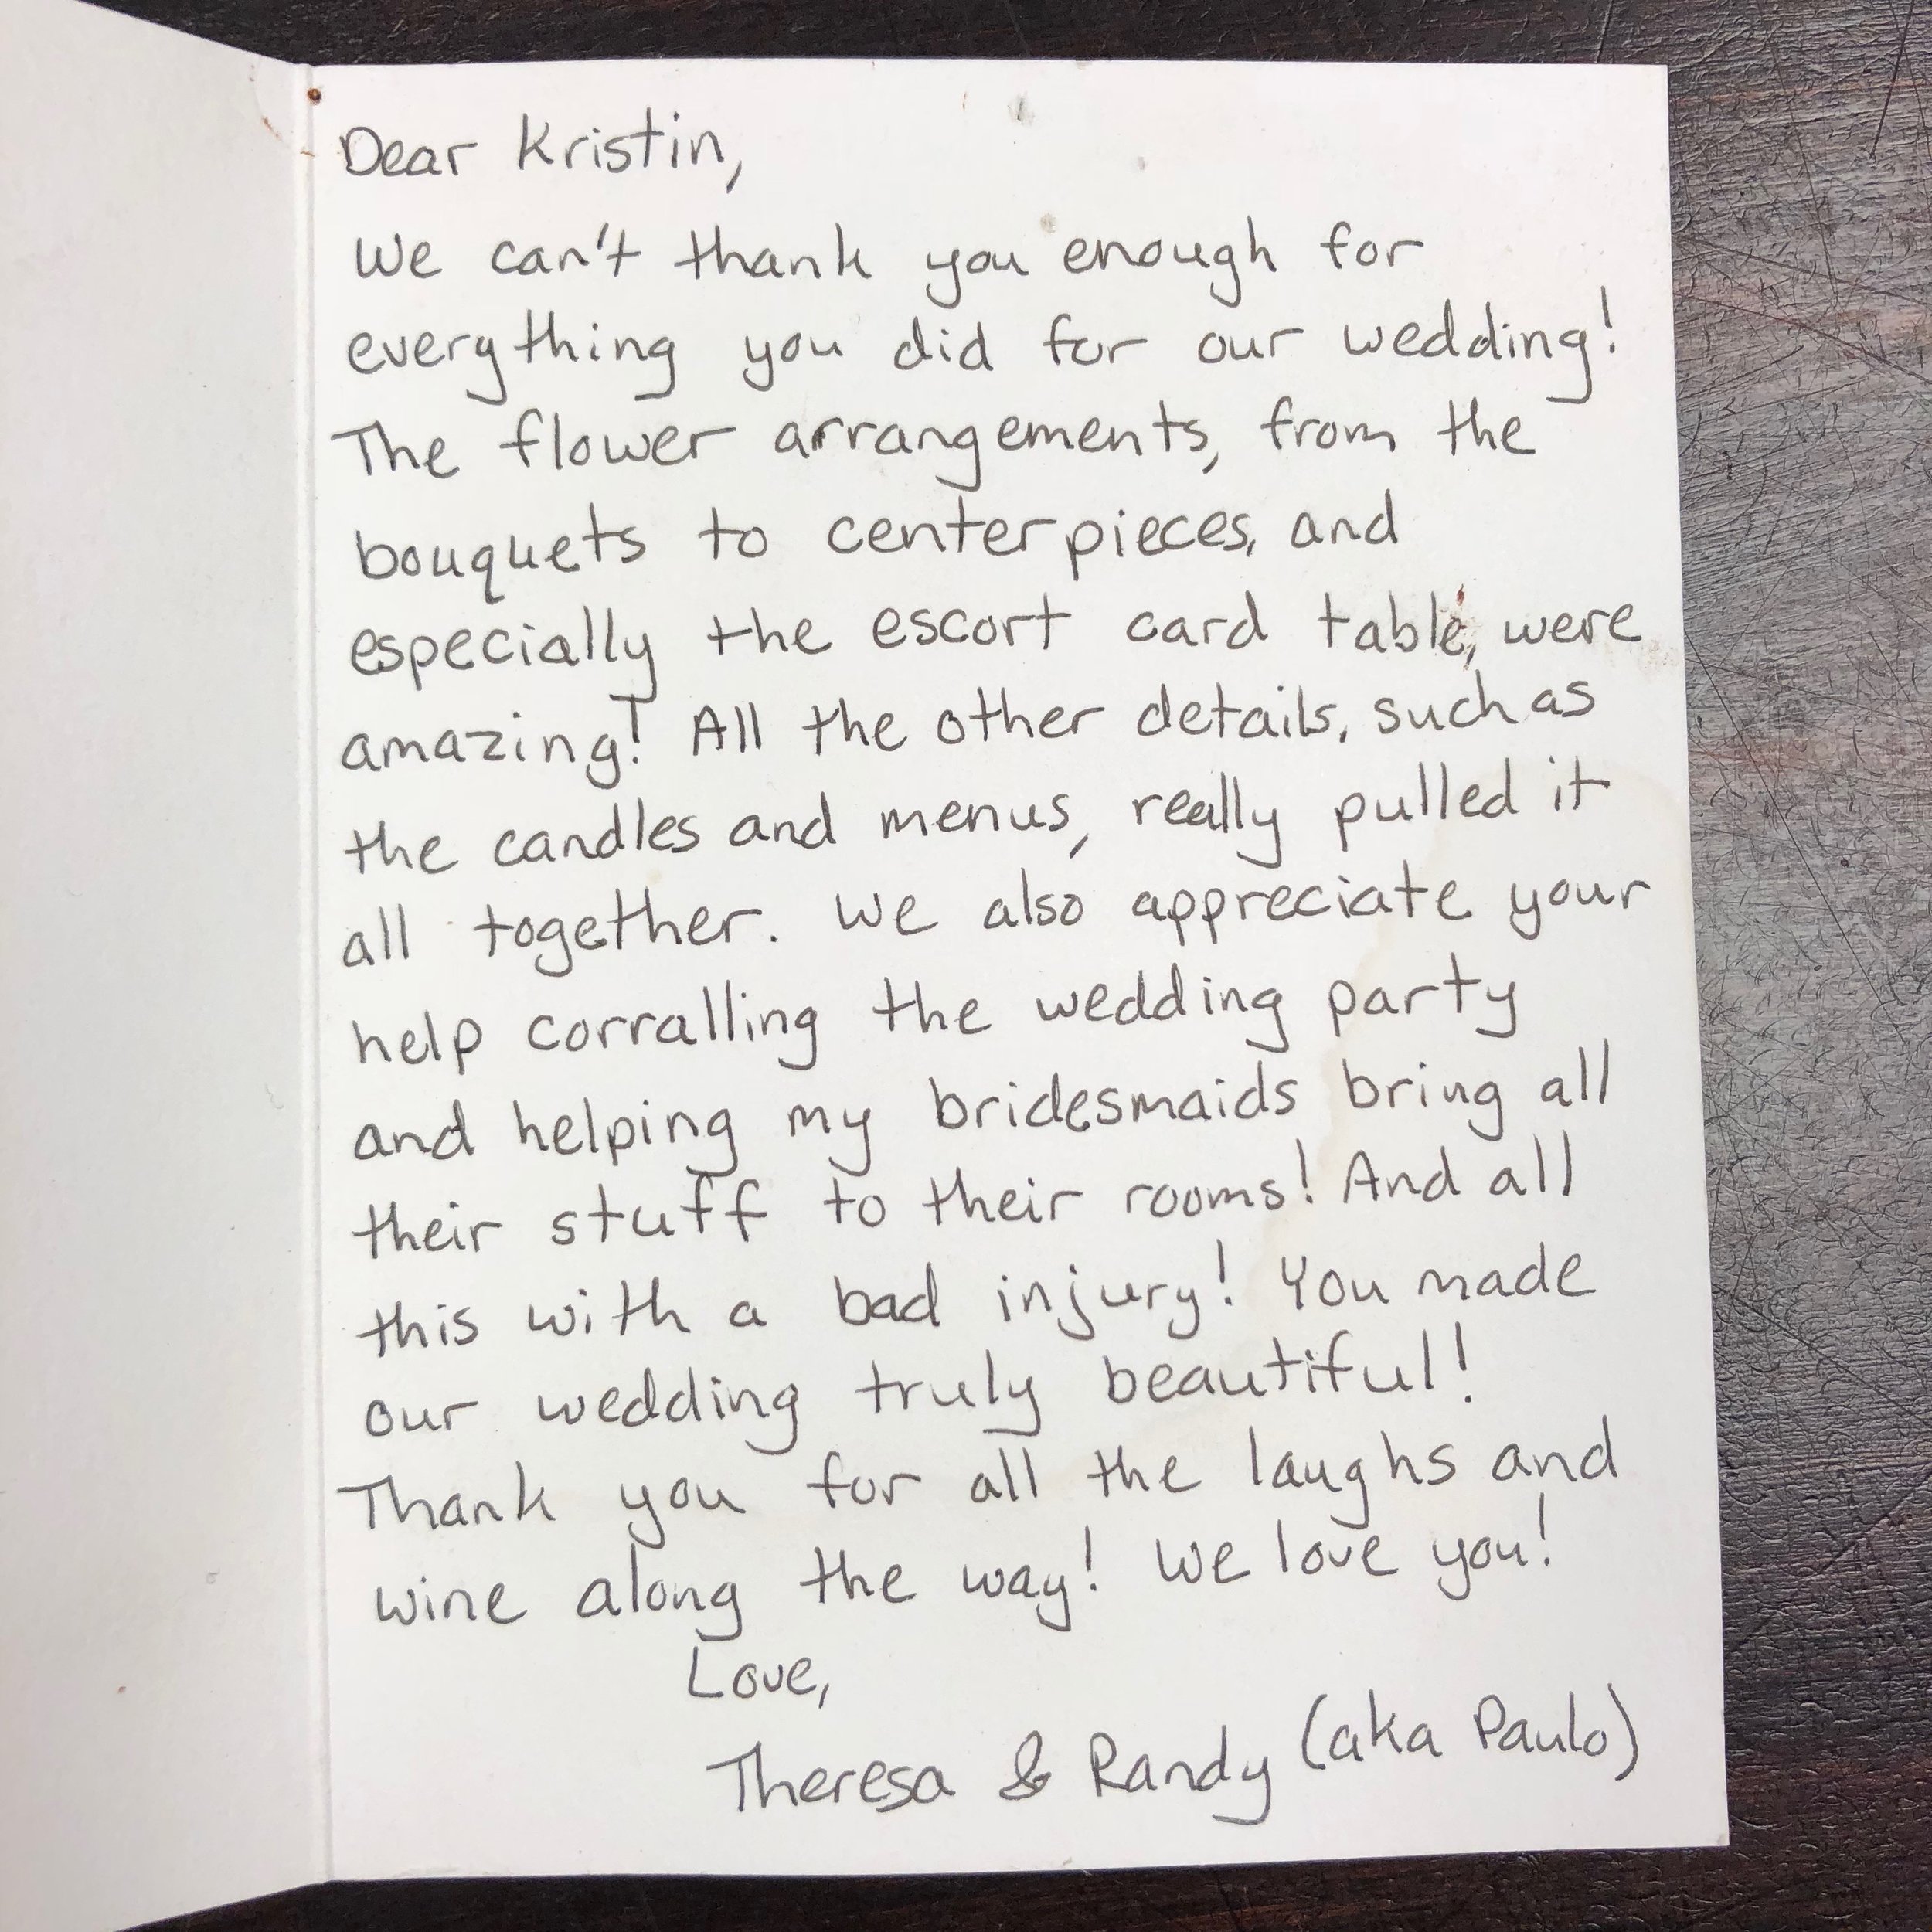 Dear Kristin,
We can't thank you enough for
everything you did for our wedding!
The flower arrangements, from the
bouquets to centerpieces, and
especially the escort card table, were
amazing! All the other details, such as
the candles and menus, really pulled it
all together. We also appreciate your
help corralling the wedding party
and helping my bridesmaids bring all
their stuff to their rooms! And all
this with a bad injury! You made
our wedding truly beautiful!
Thank you for all the laughs and
wine along the way! We love you!
Love,
Theresa & Randy (aka Paulo)